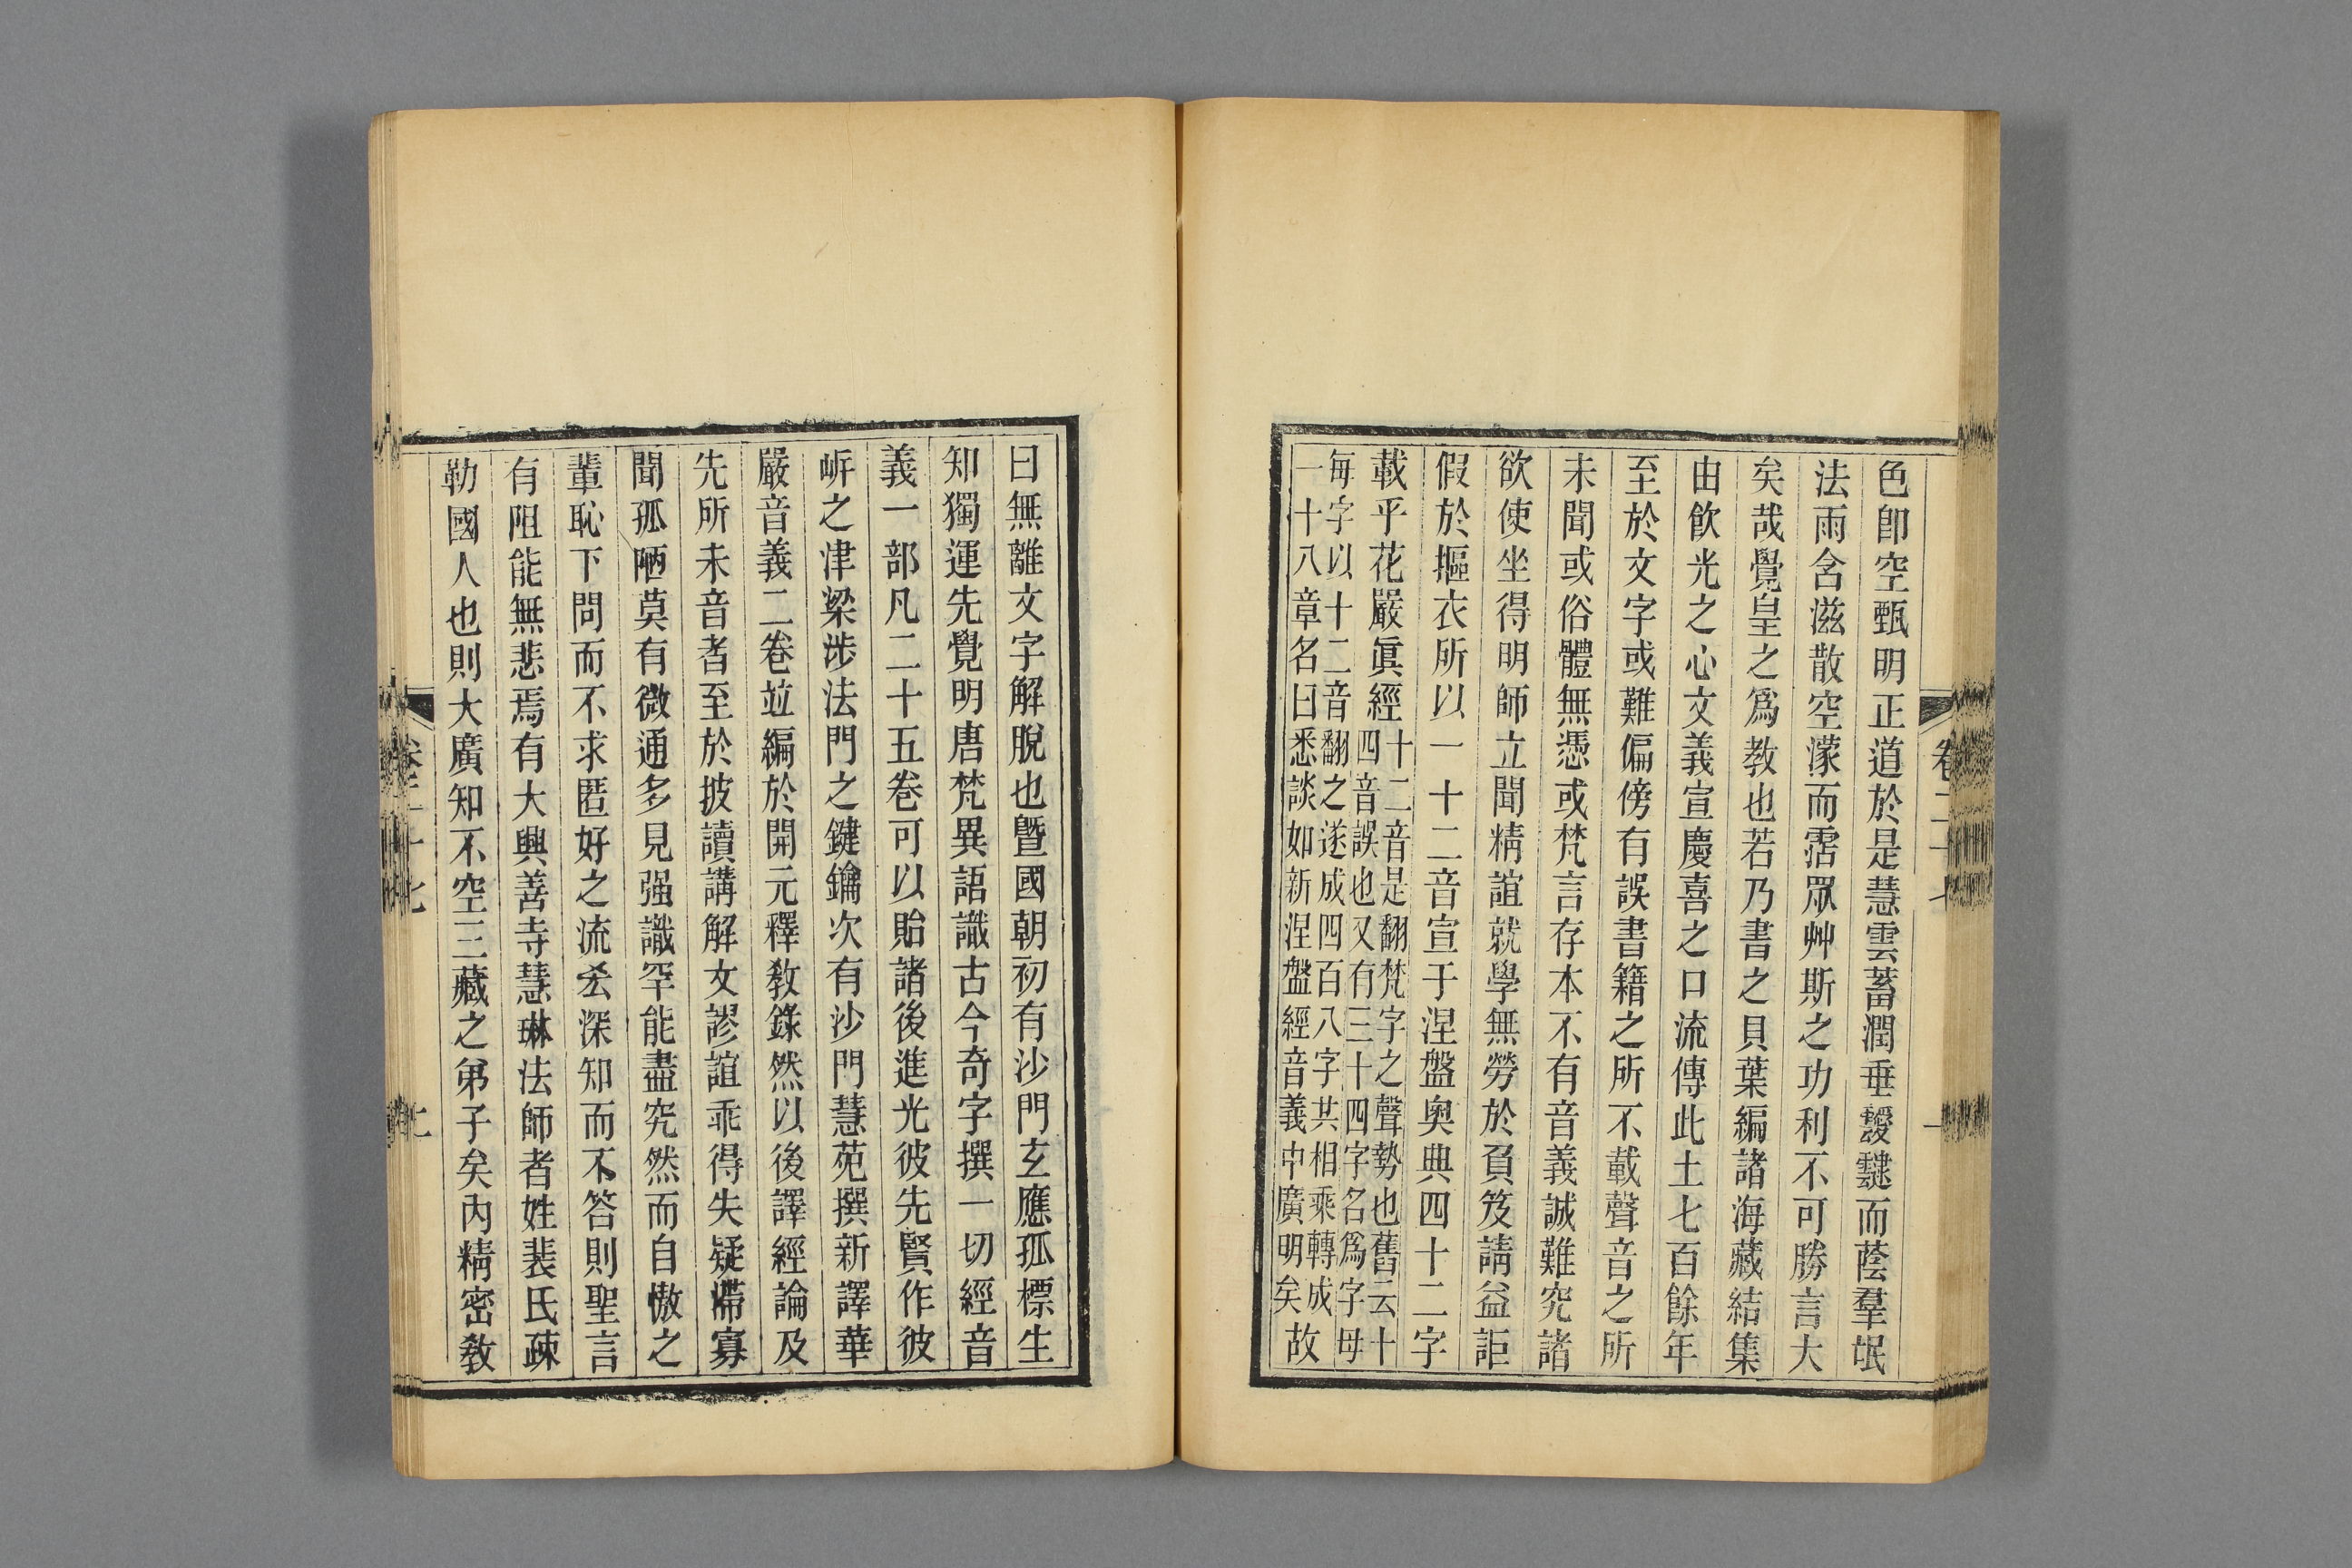 色卽空甄明正道於是慧雲蓄潤垂靉靆而蔭羣氓
法雨含滋散空濛而霑眾艸斯之功利不可勝言大
矣哉覺皇之爲教也若乃書之貝葉編諸海藏結集
由飮光之心文義宣慶喜之口流傳此土七百餘年
至於文字或難偏傍有誤書籍之所不載聲音之所
未聞或俗體無憑或梵言存本不有音義誠難究諸
欲使坐得明師立聞精誼就學無勞於負笈請益詎
假於摳衣所以一十二音宣于涅盤奧典四十二字
載乎花嚴眞經十二音是翻梵字之聲勢也舊云十
四音誤也又有三十四字名爲字母
每字以十二音翻之遂成四百八字共相乘轉成
一十八章名曰悉談如新涅盤經音義中廣明矣故
曰無離文字解脫也曁國朝初有沙門玄應孤標生
知獨運先覺明唐梵異語識古今奇字撰一切經音
義一部凡二十五卷可以貽諸後進光彼先賢作彼
㟁之津梁涉法門之鍵鑰次有沙門慧苑撰新譯華
嚴音義二卷竝編於開元釋教錄然以後譯經論及
先所未音者至於披讀講解文謬誼乖得失疑滯寡
聞孤陋莫有微通多見强識罕能盡究然而自傲之
輩恥下問而不求匿好之流㳟深知而不答則聖言
有阻能無悲焉有大興善寺慧琳法師者姓裴氏疎
勒國人也則大廣知不空三藏之弟子矣內精密教
卷二十七
一
卷二十七
二